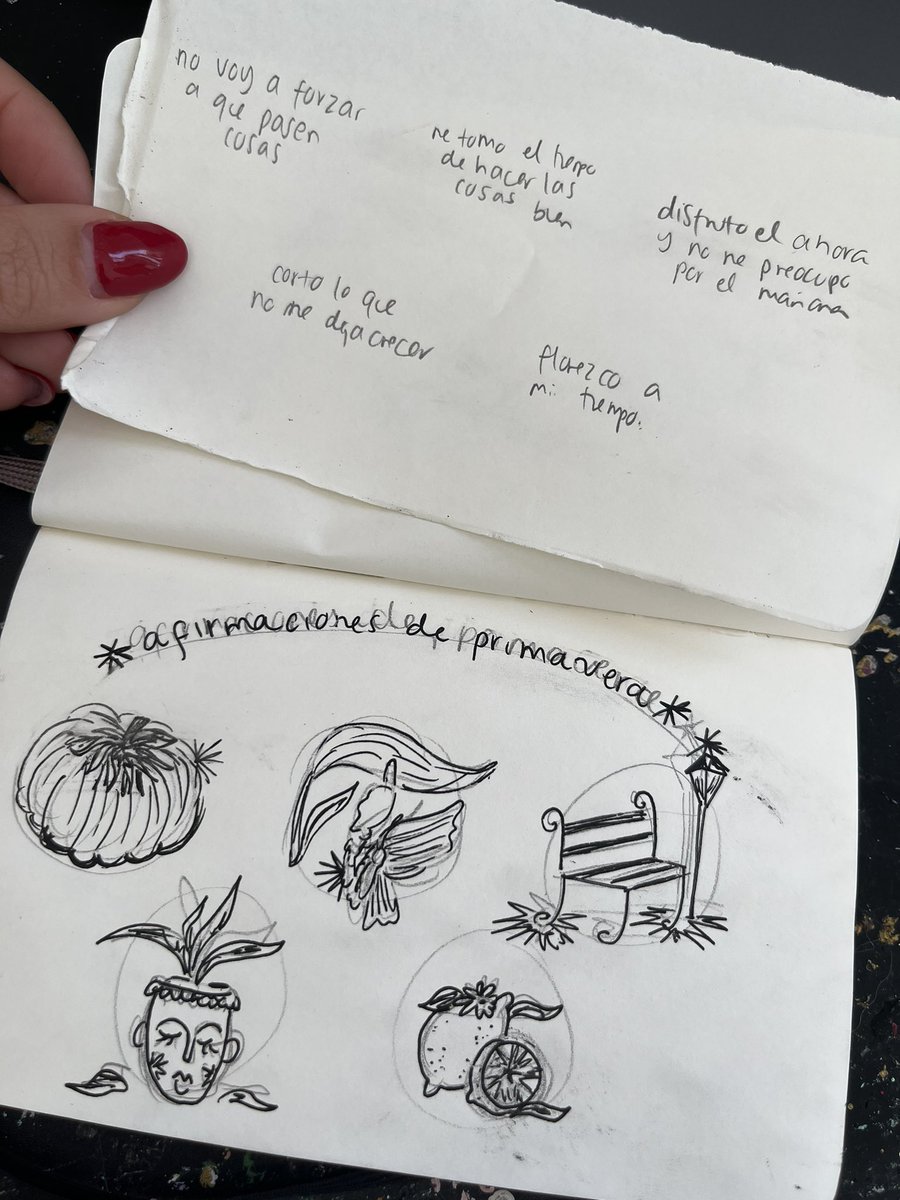 no voy a forzar
a que pasen
cosas
me tomo el tiempo
de hacer las
cosas bien
disfruto el ahora
y no me preocupo
por el mañana
corto lo que
no me deja crecer
florezco a
mi tiempo.
*afirmaciones de primavera*